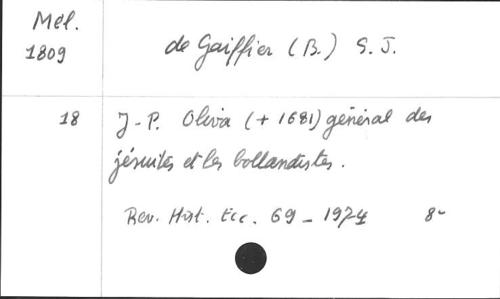 Mél.
1809
de Gaiffier (B.) S. J.
18
J-P. Oliva (+ 1681) général des
jésuites et les bollandistes.
Rev. Hist. Ecc. 69 - 1974 8-